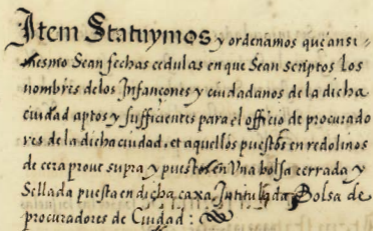 Item Statuymos y ordenamos que ansi-
mesmo Sean fechas cedulas en que Sean scriptos los
nombres delos Infançones y ciudadanos de la dicha
ciudad aptos y sufficientes para el officio de procurado
res de la dicha ciudad. et aquellos puestos en redolinos
de cera prout supra y puestos en Una bolsa cerrada y
Sellada puesta en dicha caxa Intitulada Bolsa de
procuradores de Ciudad: